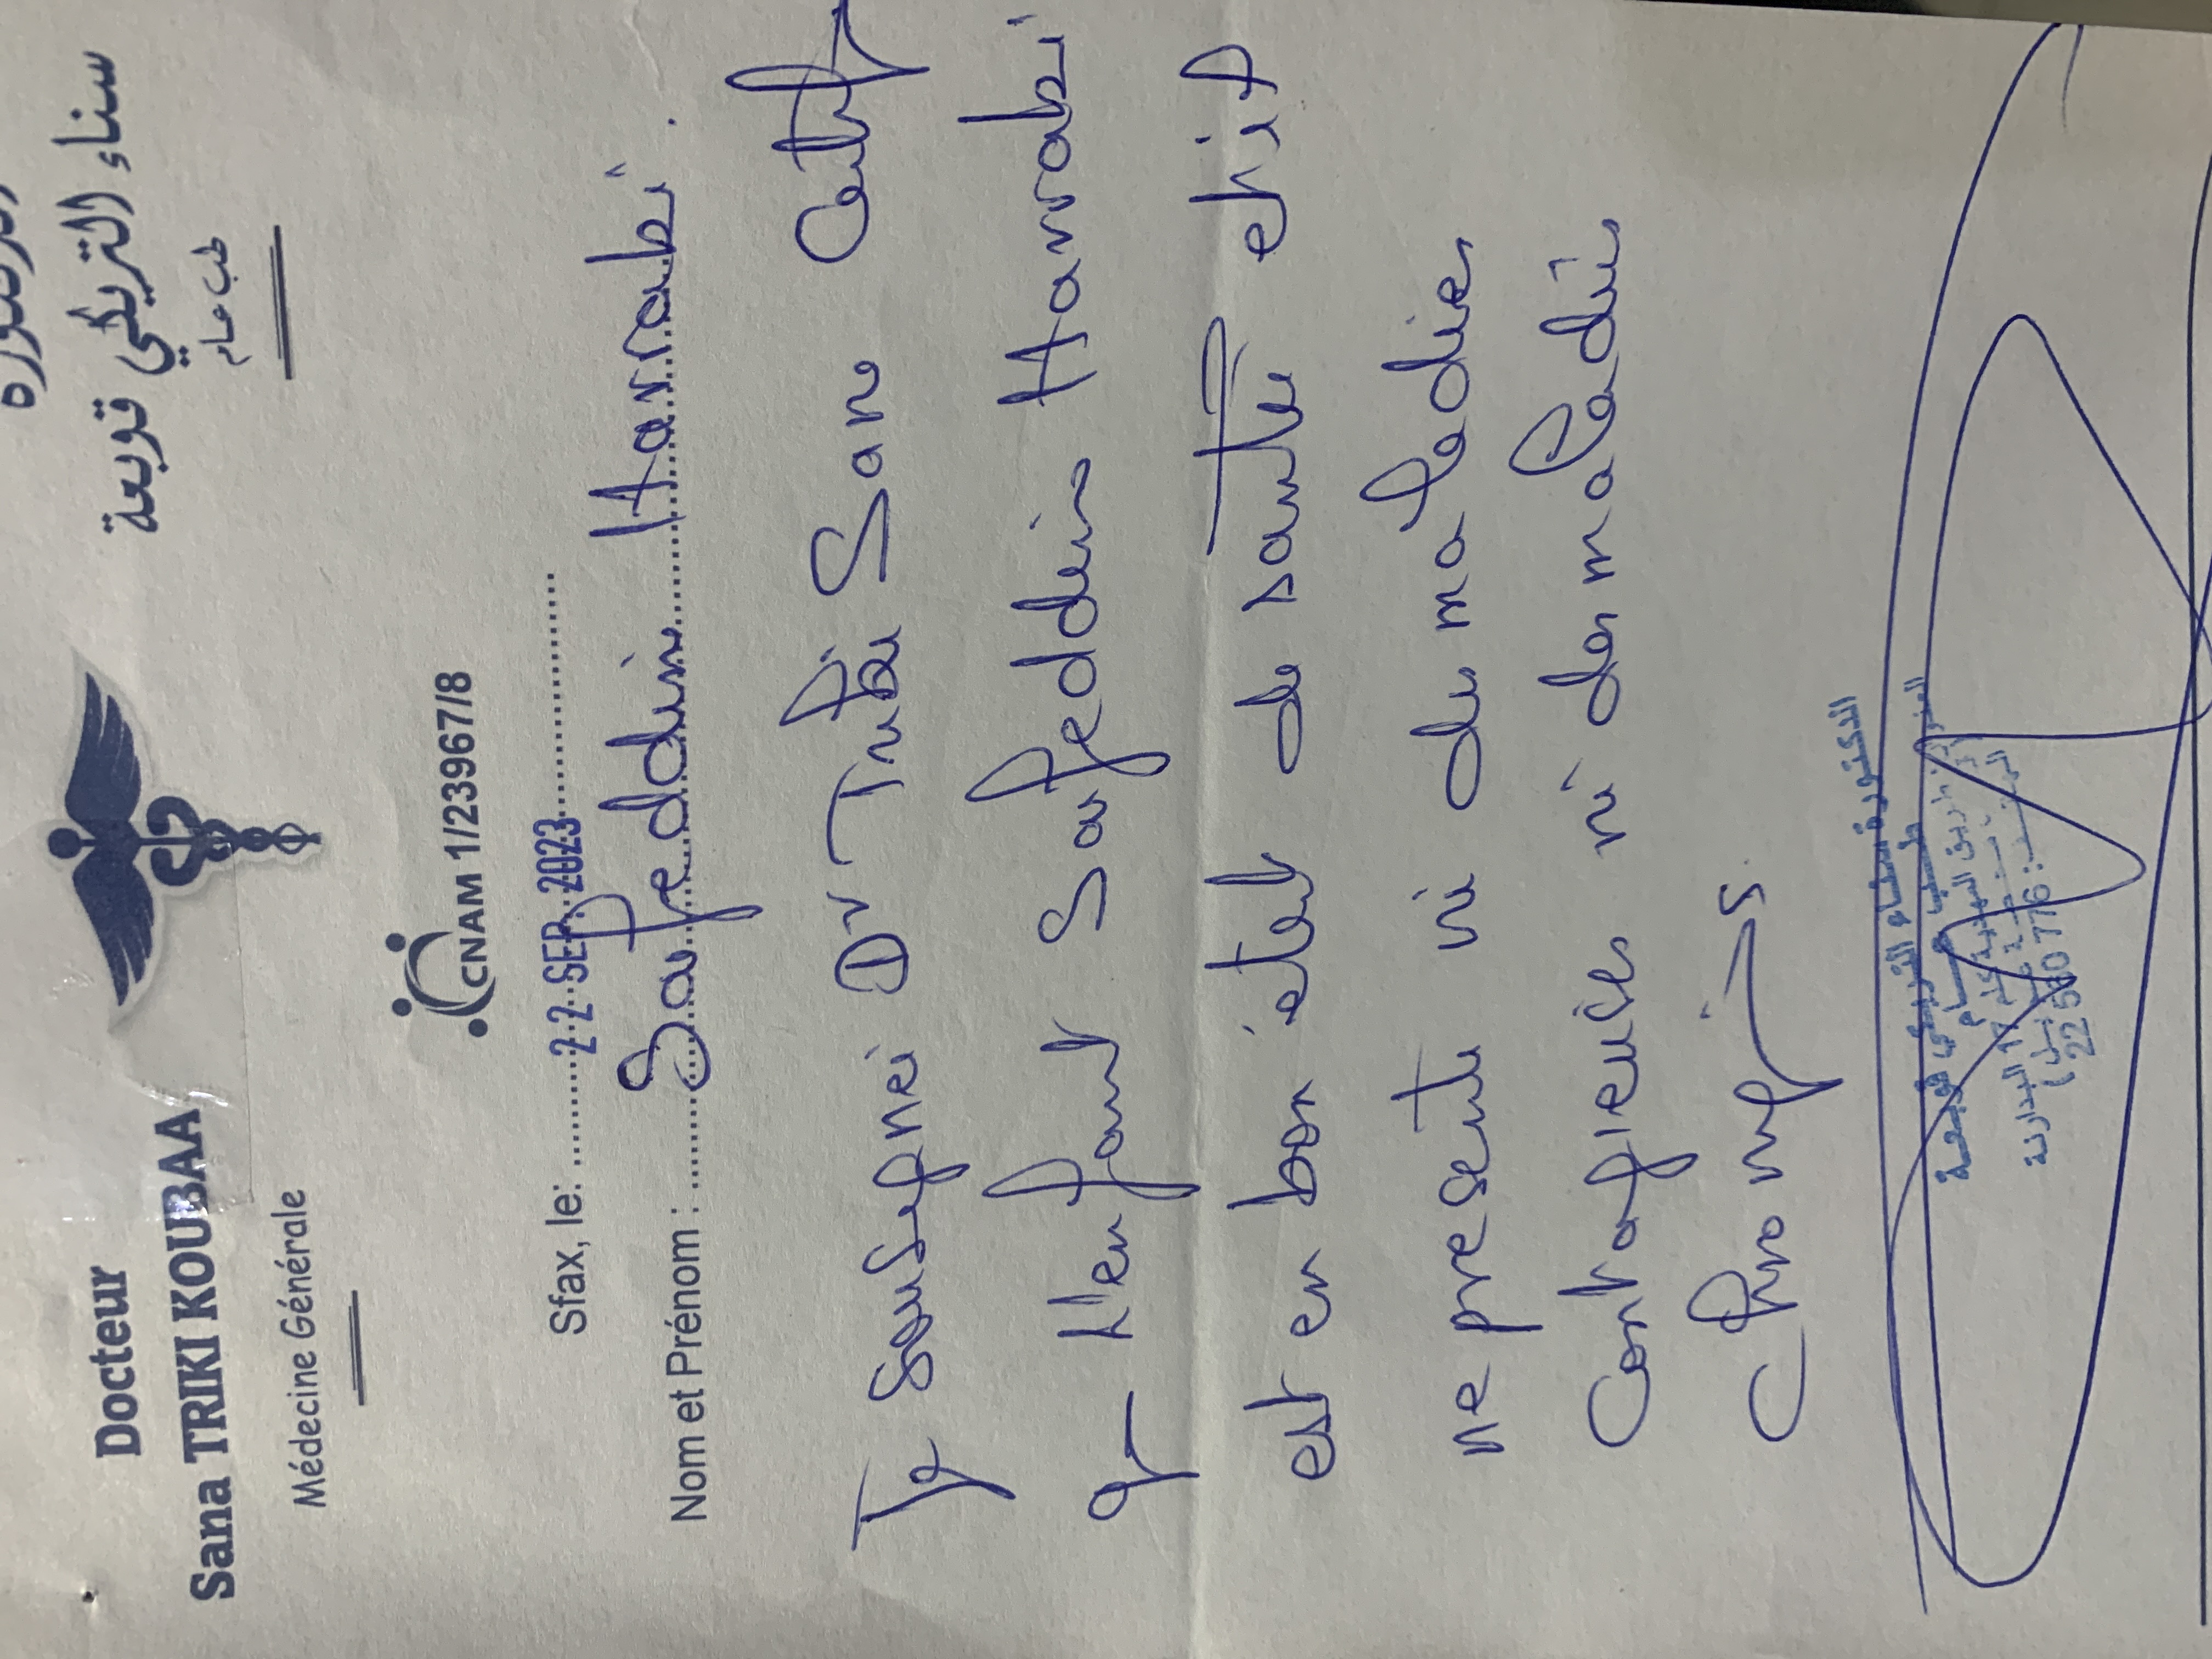 Docteur
Sana TRIKI KOUBAA
Médecine Générale
سناء التريكي قوبعة
طب عام
CNAM 1/23967/8
Sfax, le: 22 SEP. 2023
Nom et Prénom : Safeddin Harrabi.
Je soussigné Dr Triki Sana
que l'enfant Safeddin Harrabi
est en bon état de santé et il
ne présente ni des maladies
contagieuses ni des maladies
chroniques
الدكتورة سناء التريكي قوبعة
طب عام
22 580 776